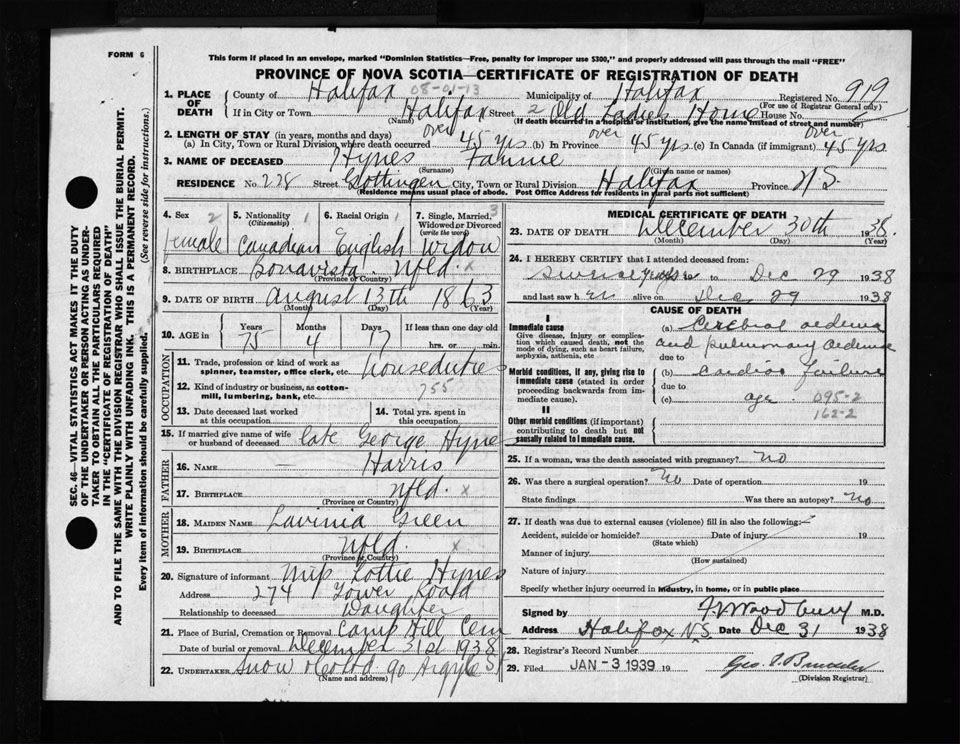 FORM 6
This form if placed in an envelope, marked "Dominion Statistics—Free, penalty for improper use $300," and properly addressed will pass through the mail "FREE"
PROVINCE OF NOVA SCOTIA—CERTIFICATE OF REGISTRATION OF DEATH
1. PLACE OF DEATH County of Halifax 08-01-13 Municipality of Halifax Registered No. 919
(For use of Registrar General only)
If in City or Town Halifax Street 2 Old Ladies Home House No.
(Name) (If death occurred in a hospital or institution, give the name instead of street and number)
2. LENGTH OF STAY (in years, months and days)
(a) In City, Town or Rural Division where death occurred over 45 yrs (b) In Province over 45 yrs (c) In Canada (if immigrant) over 45 yrs
3. NAME OF DECEASED Hynes Fannie
(Surname) (Given name or names)
RESIDENCE No. 228 Street Gottingen City, Town or Rural Division Halifax Province N.S.
(Residence means usual place of abode. Post Office Address for residents in rural parts not sufficient)
4. Sex 2 female
5. Nationality 1 Canadian
6. Racial Origin 1 English
7. Single, Married, Widowed or Divorced (write the word) 3 Widow
8. BIRTHPLACE Bonavista. Nfld. x
(Province or Country)
9. DATE OF BIRTH August 13th 1863
(Month) (Day) (Year)
10. AGE in Years Months Days If less than one day old
75 4 17 hrs. or min.
OCCUPATION
11. Trade, profession or kind of work as spinner, teamster, office clerk, etc. houseduties
12. Kind of industry or business, as cotton-mill, lumbering, bank, etc. 755
13. Date deceased last worked at this occupation
14. Total yrs. spent in this occupation
15. If married give name of wife or husband of deceased late George Hynes
FATHER
16. NAME — Harris
17. BIRTHPLACE Nfld. x
(Province or Country)
MOTHER
18. MAIDEN NAME Lavinia Green
19. BIRTHPLACE Nfld. x
(Province or Country)
20. Signature of informant Miss Lottie Hynes
Address 274 Tower Road
Relationship to deceased Daughter
21. Place of Burial, Cremation or Removal Camp Hill Cem
Date of burial or removal December 31st 1938
22. UNDERTAKER Snow & Co Ltd 90 Argyle St
(Name and address)
MEDICAL CERTIFICATE OF DEATH
23. DATE OF DEATH December 30th 1938.
(Month) (Day) (Year)
24. I HEREBY CERTIFY that I attended deceased from:
to Dec 29 1938
and last saw her alive on Dec 29 1938
CAUSE OF DEATH
I
Immediate cause
Give disease, injury or complication which caused death, not the mode of dying, such as heart failure, asphyxia, asthenia, etc
(a) Cerebral oedema and pulmonary oedema
due to
Morbid conditions, if any, giving rise to immediate cause (stated in order proceeding backwards from immediate cause).
(b) Cardiac failure
due to
(c) age. 095-2
162-2
II
Other morbid conditions (if important) contributing to death but not causally related to immediate cause.
25. If a woman, was the death associated with pregnancy? No
26. Was there a surgical operation? No Date of operation 19
State findings Was there an autopsy? No
27. If death was due to external causes (violence) fill in also the following:
Accident, suicide or homicide? Date of injury 19
(State which)
Manner of injury
(How sustained)
Nature of injury
Specify whether injury occurred in industry, in home, or in public place
Signed by F.V. Woodbury M.D.
Address Halifax N.S. Date Dec 31 1938
28. Registrar's Record Number
29. Filed JAN -3 1939 19
(Division Registrar)
SEC. 46—VITAL STATISTICS ACT MAKES IT THE DUTY
OF THE UNDERTAKER OR PERSON ACTING AS UNDER-
TAKER TO OBTAIN ALL THE PARTICULARS REQUIRED
IN THE "CERTIFICATE OF REGISTRATION OF DEATH"
AND TO FILE THE SAME WITH THE DIVISION REGISTRAR WHO SHALL ISSUE THE BURIAL PERMIT.
WRITE PLAINLY WITH UNFADING INK. THIS IS A PERMANENT RECORD.
Every item of information should be carefully supplied. (See reverse side for instructions.)